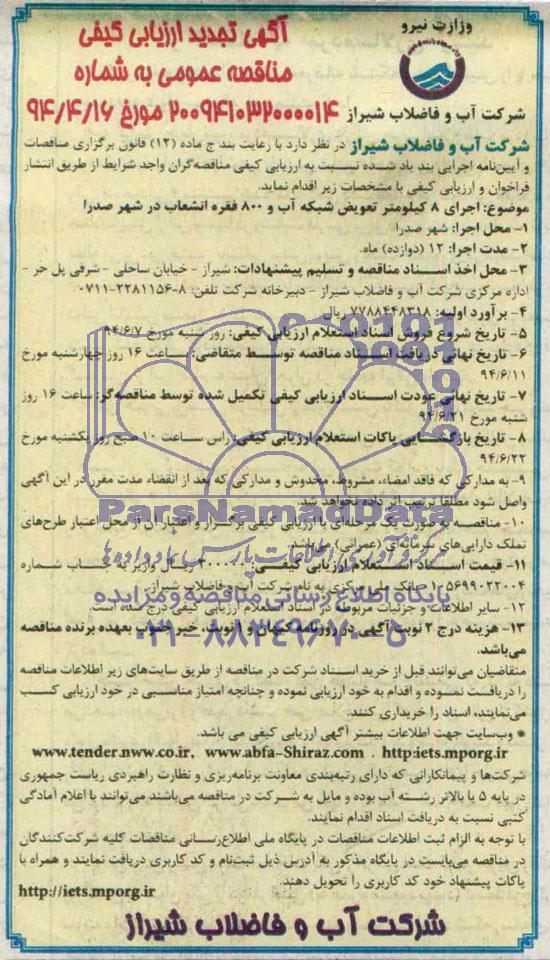 وزارت نیرو
آگهی تجدید ارزیابی کیفی
مناقصه عمومی به شماره
۲۰۰۹۴۱۰۳۲۰۰۰۰۱۴ مورخ ۹۴/۴/۱۶
شرکت آب و فاضلاب شیراز
شرکت آب و فاضلاب شیراز در نظر دارد با رعایت بند ج ماده (۱۲) قانون برگزاری مناقصات
و آیین‌نامه اجرایی بند یاد شده نسبت به ارزیابی کیفی مناقصه‌گران واجد شرایط از طریق انتشار
فراخوان و ارزیابی کیفی با مشخصات زیر اقدام نماید.
موضوع: اجرای ۸ کیلومتر تعویض شبکه آب و ۸۰۰ فقره انشعاب در شهر صدرا
۱- محل اجرا: شهر صدرا
۲- مدت اجرا: ۱۲ (دوازده) ماه.
۳- محل اخذ اسناد مناقصه و تسلیم پیشنهادات: شیراز - خیابان ساحلی - شرقی پل حر -
اداره مرکزی شرکت آب و فاضلاب شیراز - دبیرخانه شرکت تلفن: ۸-۲۲۸۱۱۵۶-۰۷۱۱
۴- برآورد اولیه: ۷۷۸۸۴۴۸۳۱۸ ریال
۵- تاریخ شروع فروش اسناد استعلام ارزیابی کیفی: روز شنبه مورخ ۹۴/۶/۷
۶- تاریخ نهائی دریافت اسناد مناقصه توسط متقاضی: ساعت ۱۶ روز چهارشنبه مورخ
۹۴/۶/۱۱
۷- تاریخ نهائی عودت اسناد ارزیابی کیفی تکمیل شده توسط مناقصه‌گر: ساعت ۱۶ روز
شنبه مورخ ۹۴/۶/۲۱
۸- تاریخ بازگشایی پاکات استعلام ارزیابی کیفی: راس ساعت ۱۰ صبح روز یکشنبه مورخ
۹۴/۶/۲۲
۹- به مدارکی که فاقد امضاء، مشروط، مخدوش و مدارکی که بعد از انقضاء مدت مقرر در این آگهی
واصل شود مطلقا ترتیب اثر داده نخواهد شد.
۱۰- مناقصه به صورت یک مرحله‌ای با ارزیابی کیفی برگزار و اعتبار آن از محل اعتبار طرح‌های
تملک دارایی‌های سرمایه‌ای (عمرانی) می‌باشد.
۱۱- قیمت اسناد استعلام ارزیابی کیفی: ریال واریز به حساب شماره
بانک ملی مرکزی به نام شرکت آب و فاضلاب شیراز.
۱۲- سایر اطلاعات و جزئیات مربوطه در اسناد استعلام ارزیابی کیفی درج شده است.
۱۳- هزینه درج ۲ نوبت آگهی در روزنامه کیهان و ۱ نوبت، خبر جنوب بعهده برنده مناقصه
می‌باشد.
متقاضیان می‌توانند قبل از خرید اسناد شرکت در مناقصه از طریق سایت‌های زیر اطلاعات مناقصه
را دریافت نموده و اقدام به خود ارزیابی نموده و چنانچه امتیاز مناسبی در خود ارزیابی کسب
می‌نمایند، اسناد را خریداری کنند.
* وب‌سایت جهت اطلاعات بیشتر آگهی ارزیابی کیفی می باشد.
www.tender.nww.co.ir, www.abfa-Shiraz.com . http:iets.mporg.ir
شرکت‌ها و پیمانکارانی که دارای رتبه‌بندی معاونت برنامه‌ریزی و نظارت راهبردی ریاست جمهوری
در پایه ۵ یا بالاتر رشته آب بوده و مایل به شرکت در مناقصه می‌باشند می‌توانند با اعلام آمادگی
کتبی نسبت به دریافت اسناد اقدام نمایند.
با توجه به الزام ثبت اطلاعات مناقصات در پایگاه ملی اطلاع‌رسانی مناقصات کلیه شرکت‌کنندگان
در مناقصه می‌بایست در پایگاه مذکور به آدرس ذیل ثبت‌نام و کد کاربری دریافت نمایند و همراه با
پاکات پیشنهاد خود کد کاربری را تحویل دهند.
http://iets.mporg.ir
شرکت آب و فاضلاب شیراز
ParsNamadData
گردآوری اطلاعات پارس نماد داده‌ها
پایگاه اطلاع رسانی مناقصه و مزایده
۰۲۱-۸۸۳۴۹۶۷۰-۵